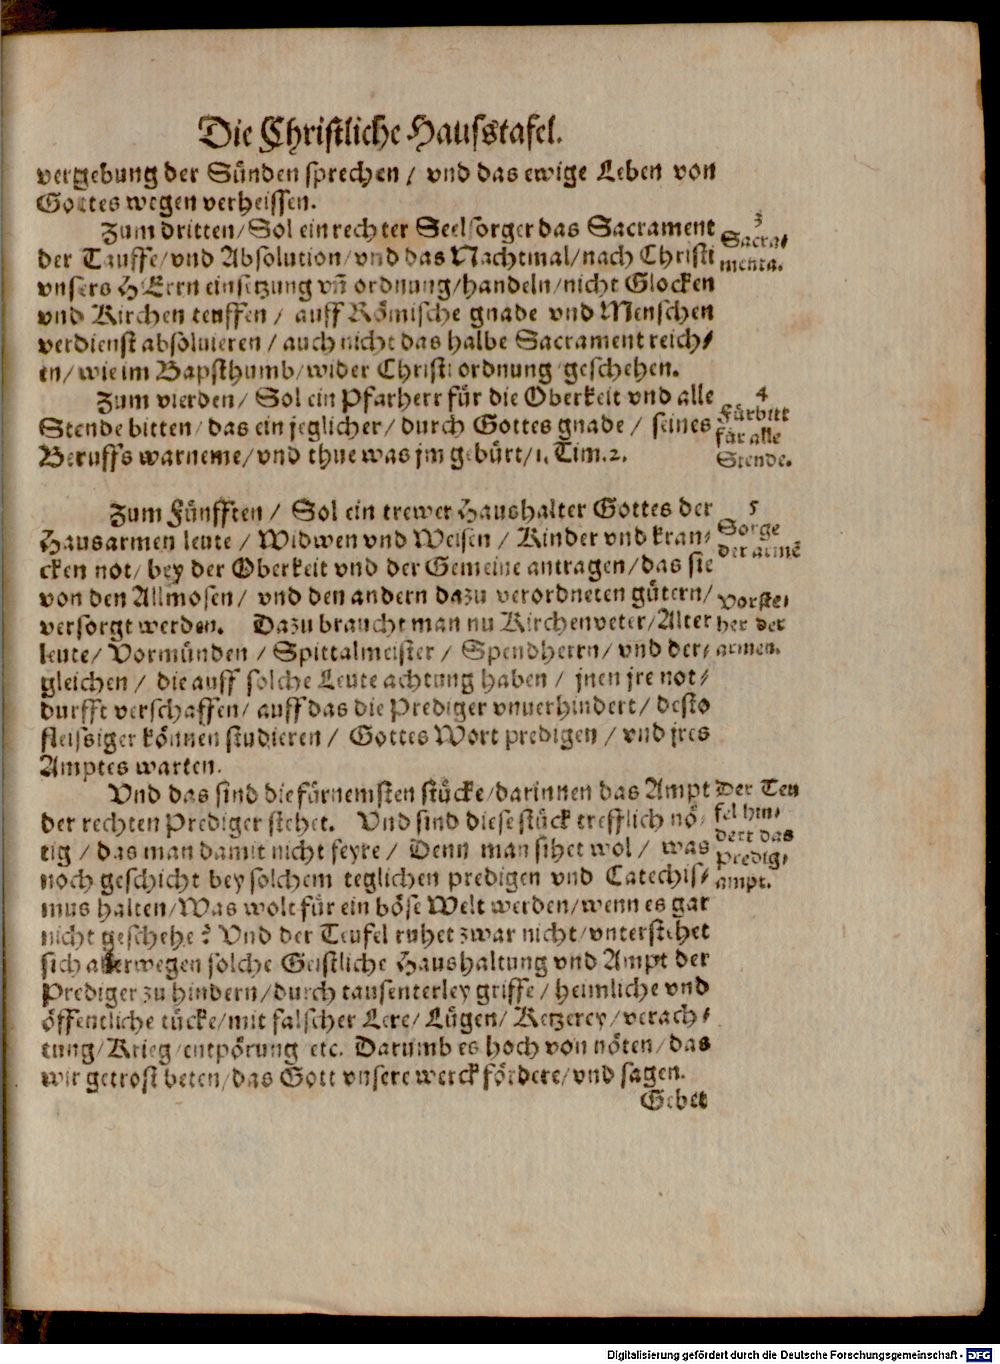 Die Christliche Haussstafel.
vergebung der Sünden sprechen / vnd das ewige Leben von
Gottes wegen verheissen.
Zum dritten / Sol ein rechter Seelsorger das Sacrament
der Tauffe / vnd Absolution / vnd das Nachtmal / nach Christi
vnsers HErrn einsetzung vñ ordnung / handeln / nicht Glocken
vnd Kirchen teuffen / auff Römische gnade vnd Menschen
verdienst absoluieren / auch nicht das halbe Sacrament reich⸗
en / wie im Bapsthumb / wider Christi ordnung geschehen.
3
Sacra⸗
menta.
Zum vierden / Sol ein Pfarherr für die Oberkeit vnd alle
Stende bitten / das ein jeglicher / durch Gottes gnade / seines
Beruffs warneme / vnd thue was jm gebürt / 1. Tim. 2.
4
Fürbitt
für alle
Stende.
Zum Fünfften / Sol ein trewer Haushalter Gottes der
Hausarmen leute / Widwen vnd Weisen / Kinder vnd kran⸗
cken not / bey der Oberkeit vnd der Gemeine antragen / das sie
von den Allmosen / vnd den andern dazu verordneten gütern /
versorgt werden. Dazu braucht man nu Kirchenveter / Alter
leute / Vormünden / Spittalmeister / Spendherrn / vnd der⸗
gleichen / die auff solche Leute achtung haben / jnen jre not⸗
durfft verschaffen / auff das die Prediger vnuerhindert / desto
fleissiger können studieren / Gottes Wort predigen / vnd jres
Amptes warten.
5
Sorge
der armē
Vorste⸗
her der
armen.
Vnd das sind die fürnemsten stücke / darinnen das Ampt
der rechten Prediger stehet. Vnd sind diese stück trefflich nö⸗
tig / das man damit nicht feyre / Denn man sihet wol / was
noch geschicht bey solchem teglichen predigen vnd Catechis⸗
mus halten / Was wolt für ein böse Welt werden / wenn es gar
nicht geschehe? Vnd der Teufel ruhet zwar nicht / vnterstehet
sich allerwegen solche Geistliche Haushaltung vnd Ampt der
Prediger zu hindern / durch tausenterley griffe / heimliche vnd
öffentliche tücke / mit falscher Lere / Lügen / Ketzerey / verach⸗
tung / Krieg / entpörung etc. Darumb es hoch von nöten / das
wir getrost beten / das Gott vnsere werck fördere / vnd sagen.
Der Teu
fel hin⸗
dert das
Predig⸗
ampt.
Gebet
Digitalisierung gefördert durch die Deutsche Forschungsgemeinschaft - DFG